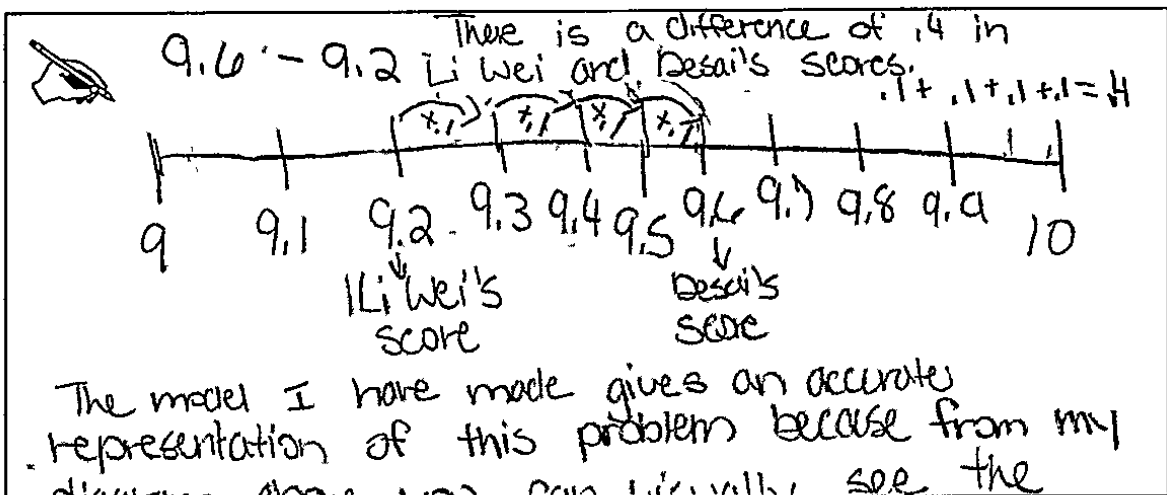 There is a difference of .4 in
9.6 - 9.2 Li Wei and Desai's scores.
.1 + .1 + .1 + .1 = .4
+.1 +.1 +.1 +.1
9 9.1 9.2 9.3 9.4 9.5 9.6 9.7 9.8 9.9 10
Li Wei's Desai's
score score
The model I have made gives an accurate
representation of this problem because from my
diagram above you can visually see the